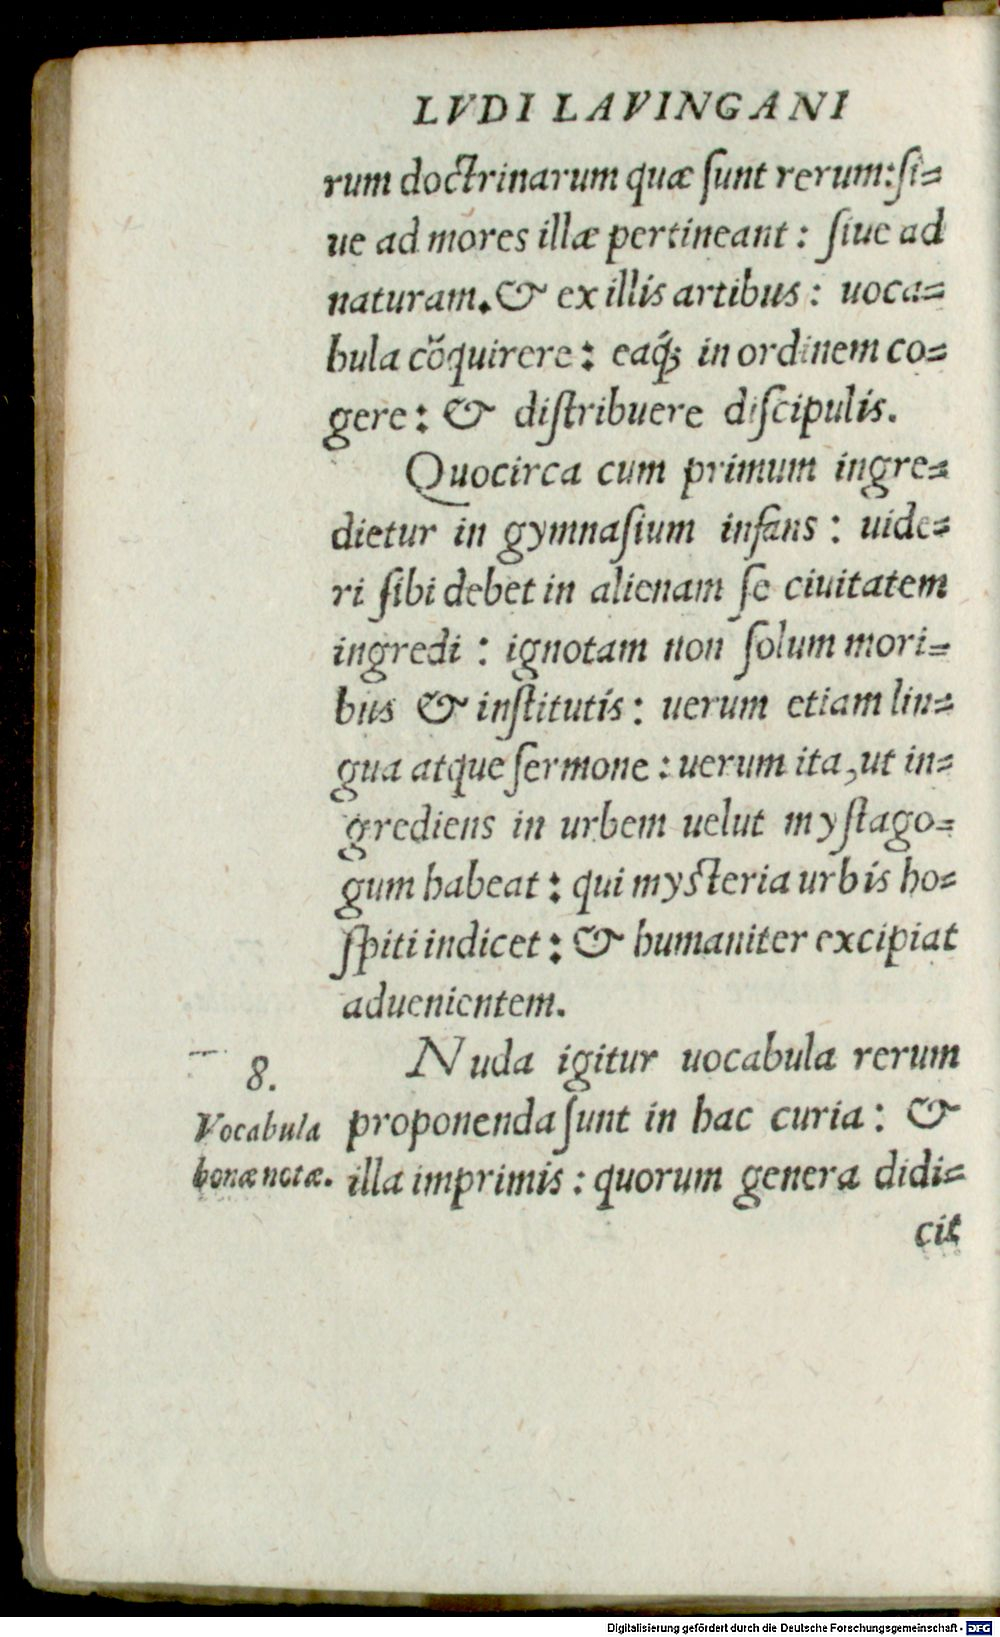 LVDI LAVINGANI
rum doctrinarum quæ ſunt rerum: ſi=
ue ad mores illæ pertineant: ſiue ad
naturam. & ex illis artibus: uoca=
bula cõquirere: eaq́; in ordinem co=
gere: & diſtribuere diſcipulis.
Quocirca cum primum ingre=
dietur in gymnaſium infans: uide=
ri ſibi debet in alienam ſe ciuitatem
ingredi: ignotam non ſolum mori=
bus & inſtitutis: uerum etiam lin=
gua atque ſermone: uerum ita, ut in=
grediens in urbem uelut myſtago=
gum habeat: qui mysteria urbis ho=
ſpiti indicet: & humaniter excipiat
aduenientem.
Nuda igitur uocabula rerum
8.
Vocabula
bonæ notæ.
proponenda ſunt in hac curia: &
illa imprimis: quorum genera didi=
cit
Digitalisierung gefördert durch die Deutsche Forschungsgemeinschaft - DFG